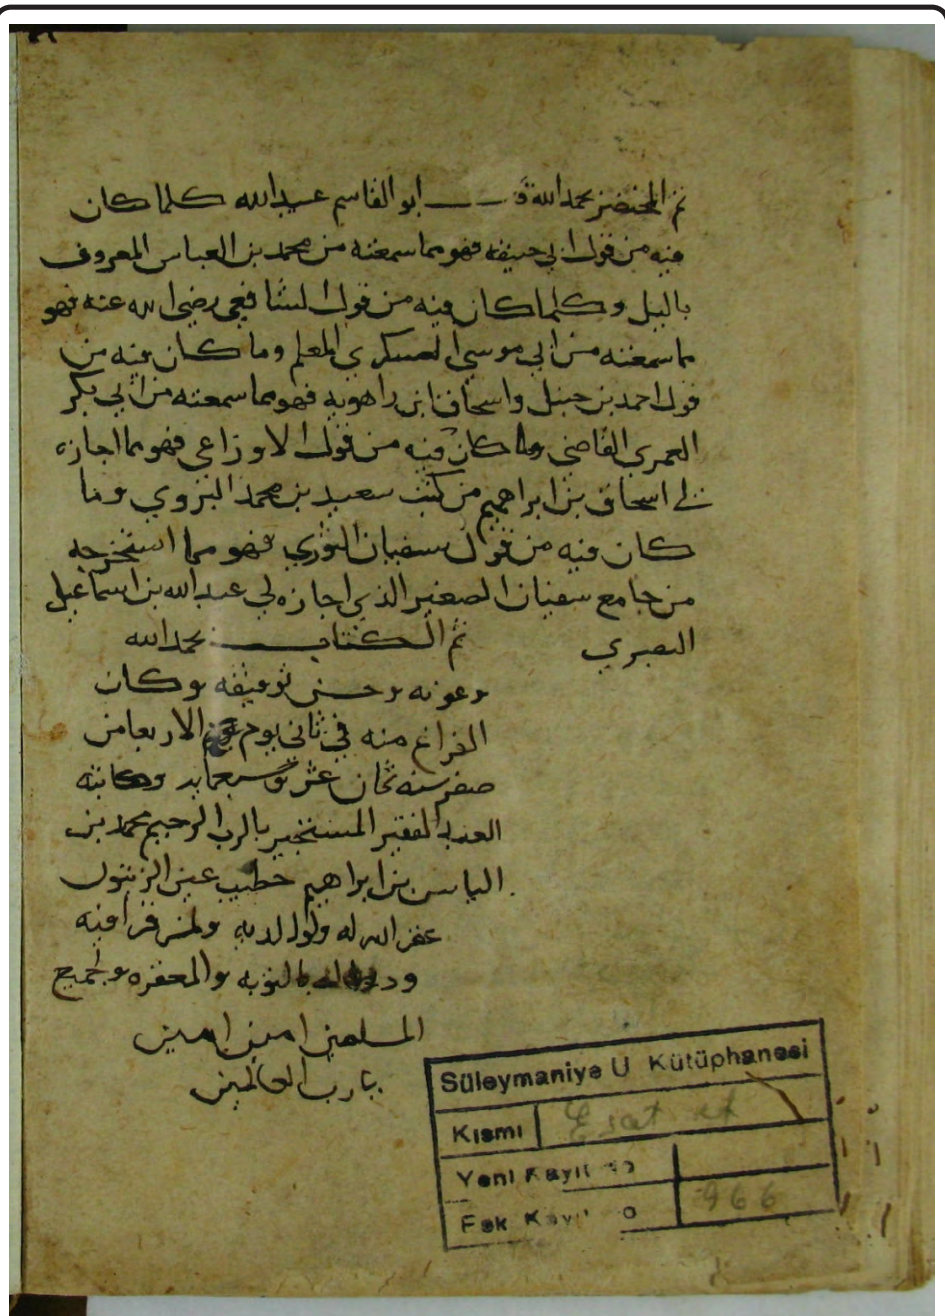 تم المختصر بحمد الله قال ابو القاسم عبدالله كلما كان
فيه من قول ابي حنيفه فهو مما سمعته من محمد بن العباس المعروف
بالبيل وكلما كان فيه من قول الشافعي رضي الله عنه فهو
مما سمعته من ابي موسي العسكري المعلم وما كان فيه من
قول احمد بن حنبل واسحاق ابن راهويه فهو مما سمعته من ابي بكر
العمري القاضي وما كان فيه من قول الاوزاعي فهو مما اجازه
لي اسحاق بن ابراهيم من كتب سعيد بن محمد البزوي وما
كان فيه من قول سفيان الثوري فهو مما استخرجه
من جامع سفيان الصغير الذي اجازه لي عبدالله بن اسماعيل
البصري تم الكتاب بحمد الله
وعونه وحسن توفيقه وكان
الفراغ منه في ثاني يوم الاربعا من
صفر سنه ثمان عشر وسبعمايه وكاتبه
العبد الفقير المستجير بالرب الرحيم محمد بن
الياس بن ابراهيم خطيب عين الزيتون
غفر الله له ولوالديه ولمن قرا فيه
بالتوبه والمغفره ولجميع
المسلمين امين امين
يارب العالمين
Süleymaniye U Kütüphanesi
Kısmı Esat ef
Yeni Kayıt No
Esk Kayıt No 966